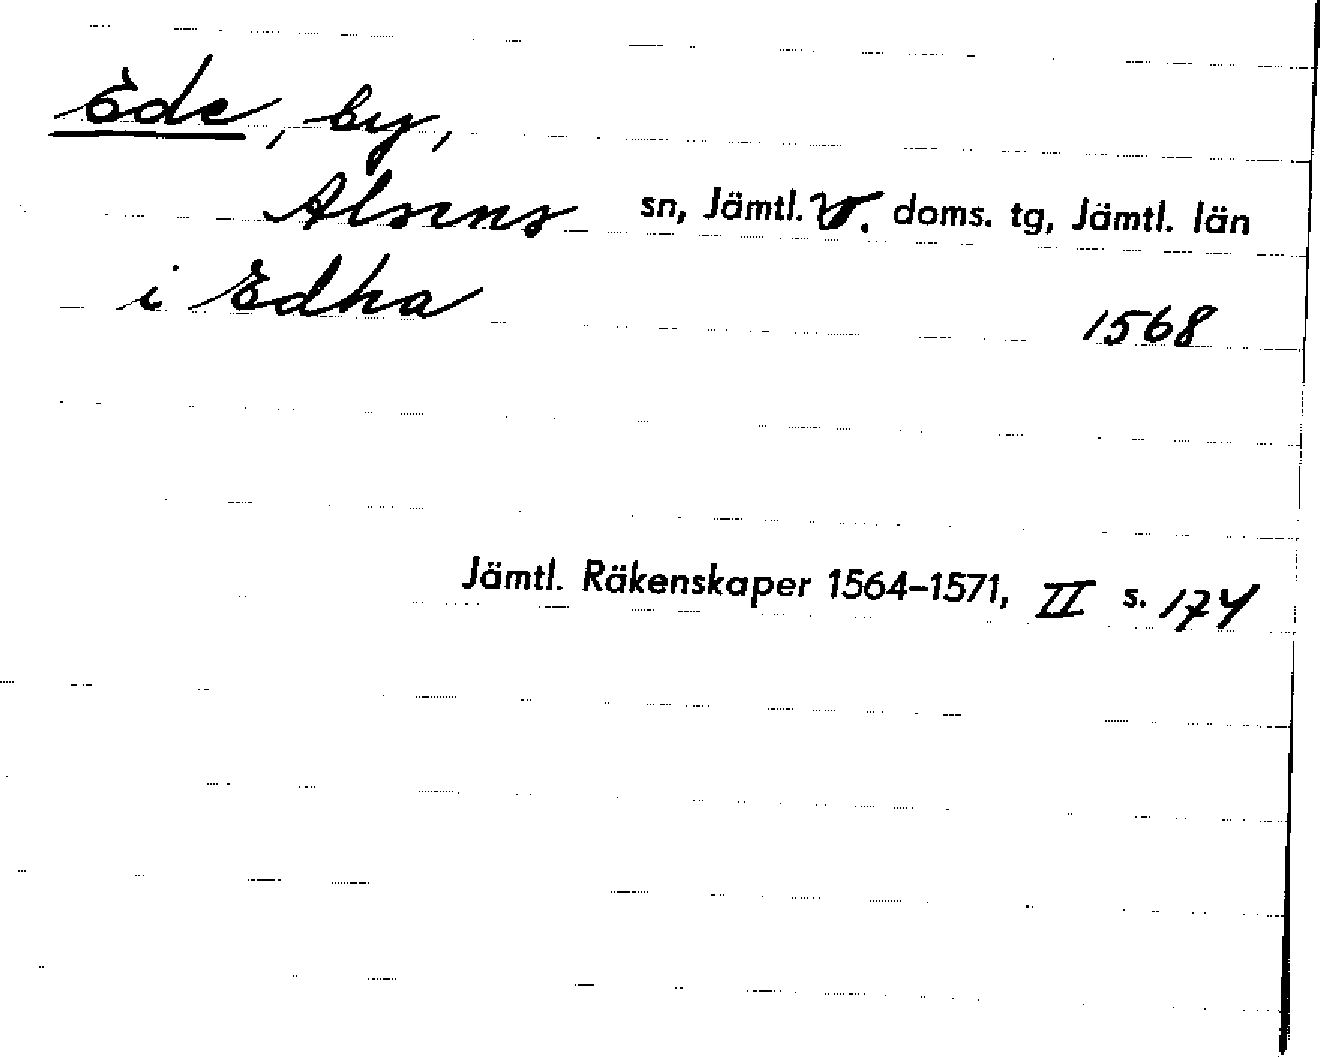 Ede, by,
Alsens sn, Jämtl. V. doms. tg, Jämtl. län
i Edha 1568
Jämtl. Räkenskaper 1564–1571, II s. 174